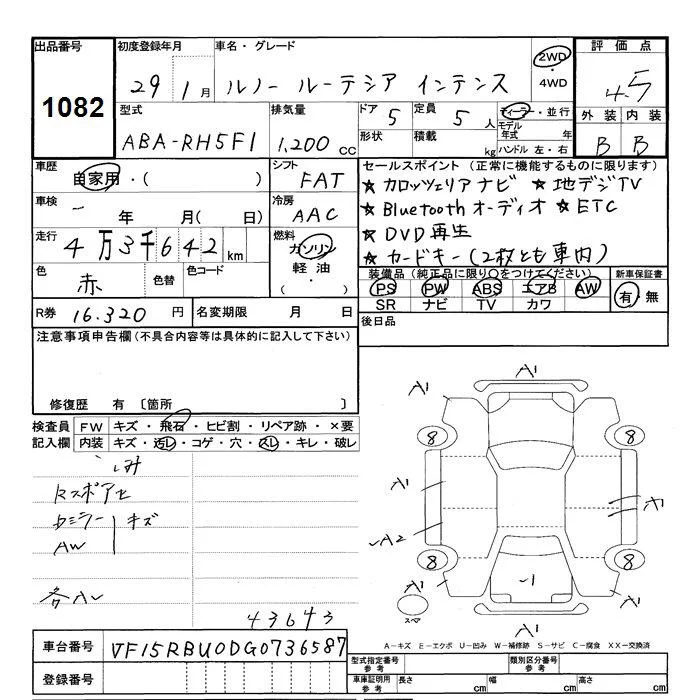 出品番号 初度登録年月 車名・グレード 評価点
1082 29 1月 ルノー ルーテシア インテンス 2WD・4WD 4.5
型式 排気量 ドア 5 定員 5 人 ディーラー・並行 外装 内装
ABA-RH5F1 1,200 CC 形状 積載 kg モデル年式 年 B B
ハンドル 左・右
車歴 自家用・( ) シフト FAT セールスポイント (正常に機能するものに限ります)
★カロッツェリアナビ ★地デジTV
車検 - 年 月( 日) 冷房 AAC ★Bluetoothオーディオ ★ETC
走行 4万3千642km 燃料 ガソリン 軽油 ( ・ ) ★DVD再生
★カードキー(2枚とも車内)
色 赤 色替 色コード 装備品 (純正品に限り○をつけてください) 新車保証書
PS PW ABS エアB AW 有・無
SR ナビ TV カワ
R券 16.320 円 名変期限 月 日 後日品
注意事項申告欄 (不具合内容等は具体的に記入して下さい)
修復歴 有 〔箇所 〕
検査員 FW キズ・飛石・ヒビ割・リペア跡・×要
記入欄 内装 キズ・汚レ・コゲ・穴・スレ・キレ・破レ
AW キズ
43643
A1
A1 A1
8 8
A1
A2
1
8 8
A1 A1
スペア
A1
A-キズ E-エクボ U-凹み W-補修跡 S-サビ C-腐食 XX-交換済
車台番号 VF15RBU0DG0736587
登録番号
型式指定番号 参考 類別区分番号 参考
車庫証明用 参考 長さ cm 幅 cm 高さ cm